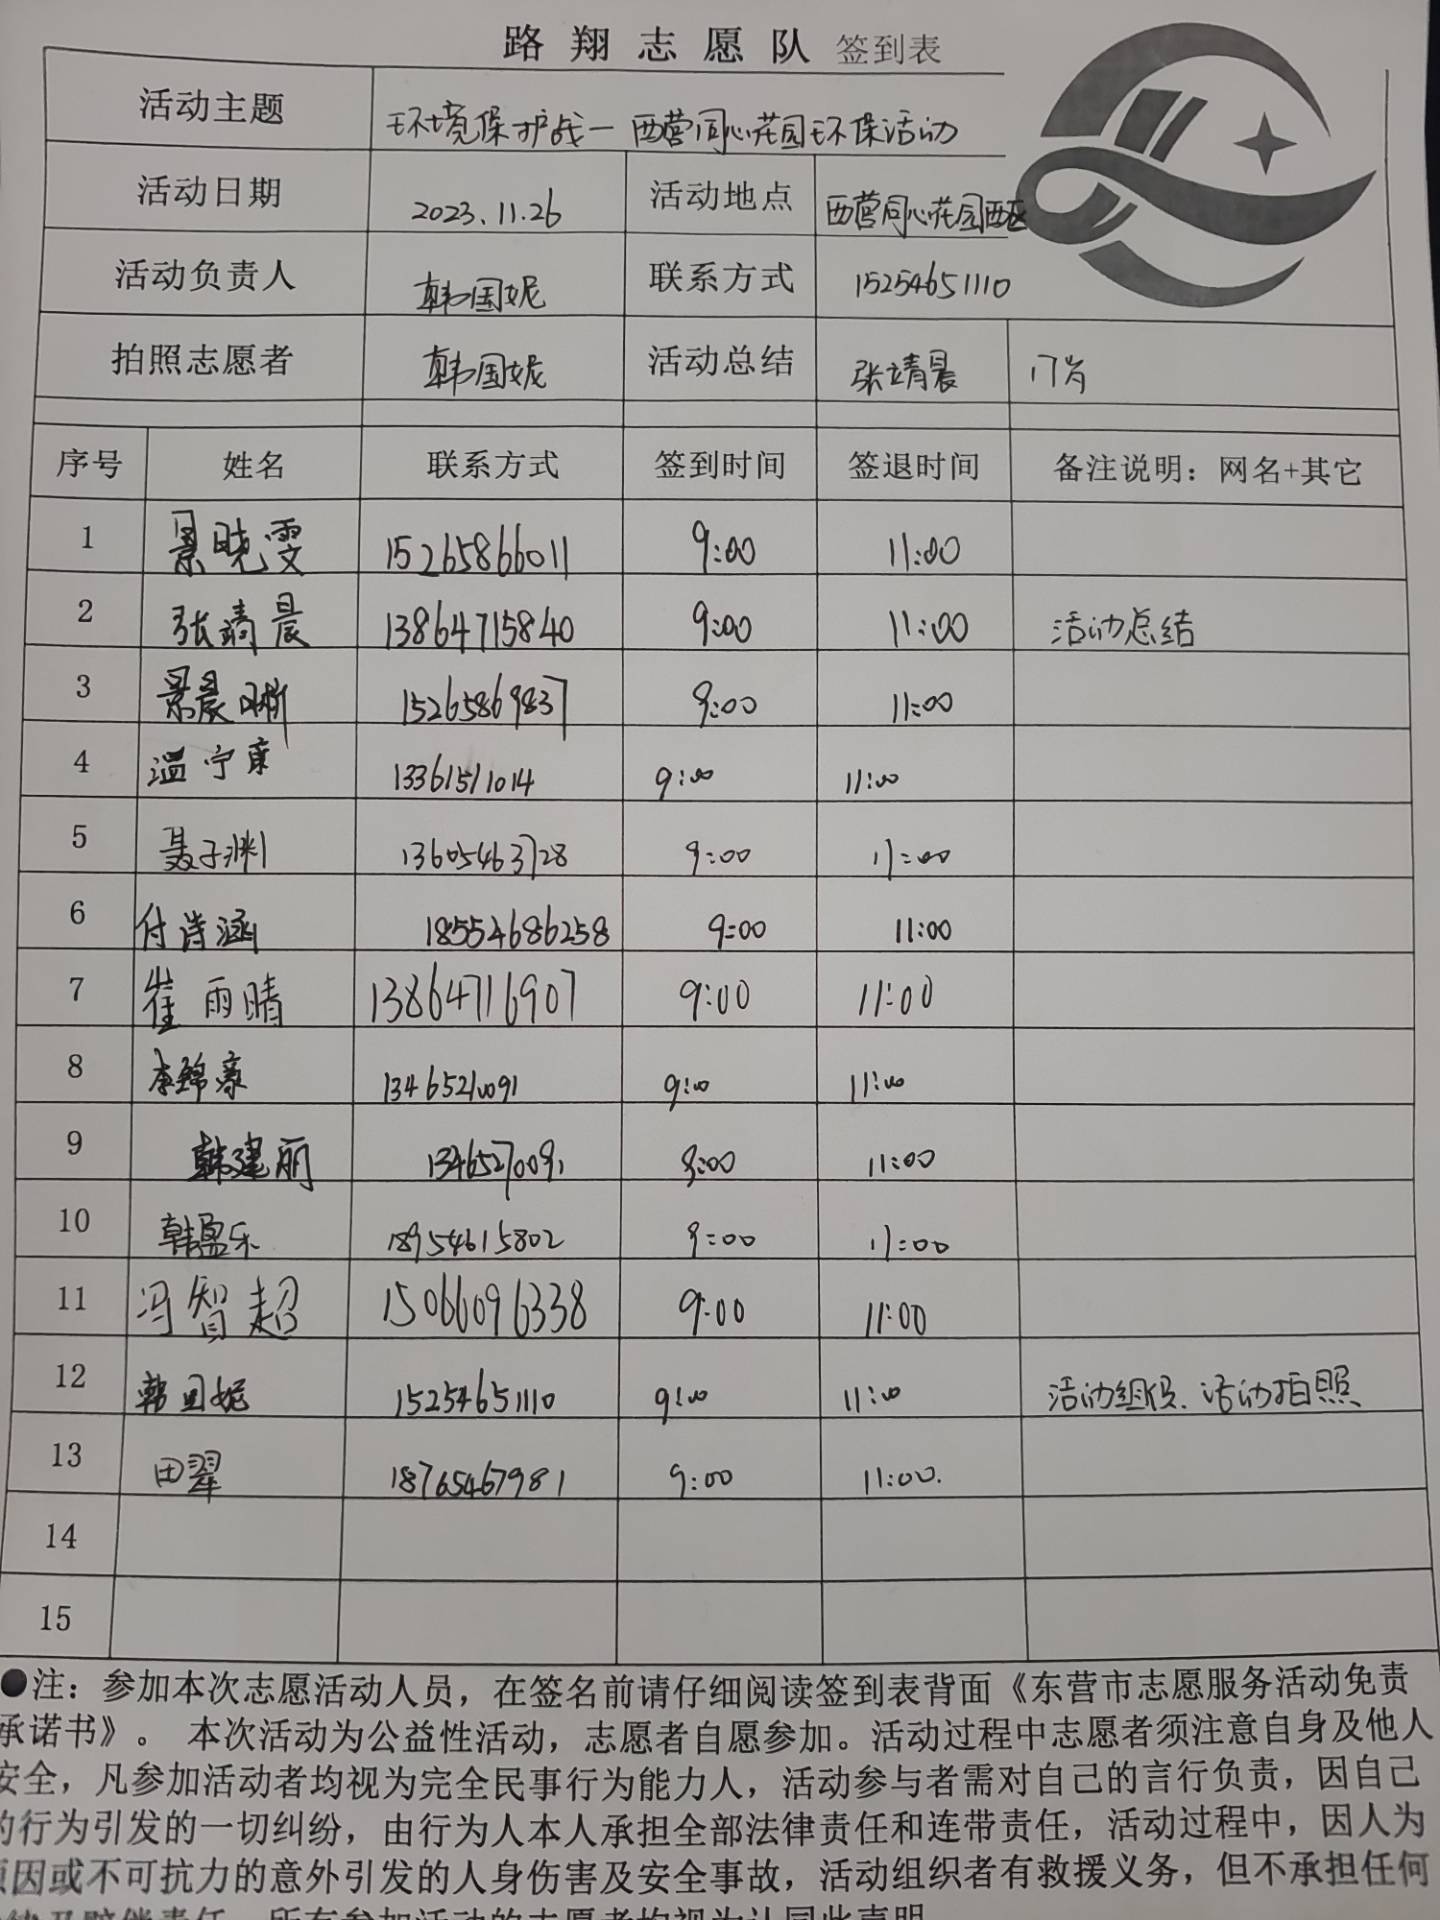 路翔志愿队 签到表
活动主题 环境保护战一西营同心花园环保活动
活动日期 2023.11.26 活动地点 西营同心花园西区
活动负责人 韩国妮 联系方式 15254651110
拍照志愿者 韩国妮 活动总结 张靖晨
序号 姓名 联系方式 签到时间 签退时间 备注说明：网名+其它
1 景晓雯 15265866011 9:00 11:00
2 张靖晨 13864715840 9:00 11:00 活动总结
3 景晨晰 15265869837 9:00 11:00
4 温宁 13361511014 9:00 11:00
5 聂子渊 13605463728 9:00 11:00
6 付诗涵 18554686258 9:00 11:00
7 崔雨晴 13864716907 9:00 11:00
8 李锦豪 9:00 11:00
9 韩建丽 9:00 11:00
10 韩盈乐 18954615802 9:00 11:00
11 冯智超 15066096338 9:00 11:00
12 韩国妮 15254651110 9:00 11:00 活动组织、活动拍照
13 田翠 18765467981 9:00 11:00.
14
15
●注：参加本次志愿活动人员，在签名前请仔细阅读签到表背面《东营市志愿服务活动免责
承诺书》。 本次活动为公益性活动，志愿者自愿参加。活动过程中志愿者须注意自身及他人
安全，凡参加活动者均视为完全民事行为能力人，活动参与者需对自己的言行负责，因自己
的行为引发的一切纠纷，由行为人本人承担全部法律责任和连带责任，活动过程中，因人为
原因或不可抗力的意外引发的人身伤害及安全事故，活动组织者有救援义务，但不承担任何
所有参加活动的志愿者均视为认同此声明